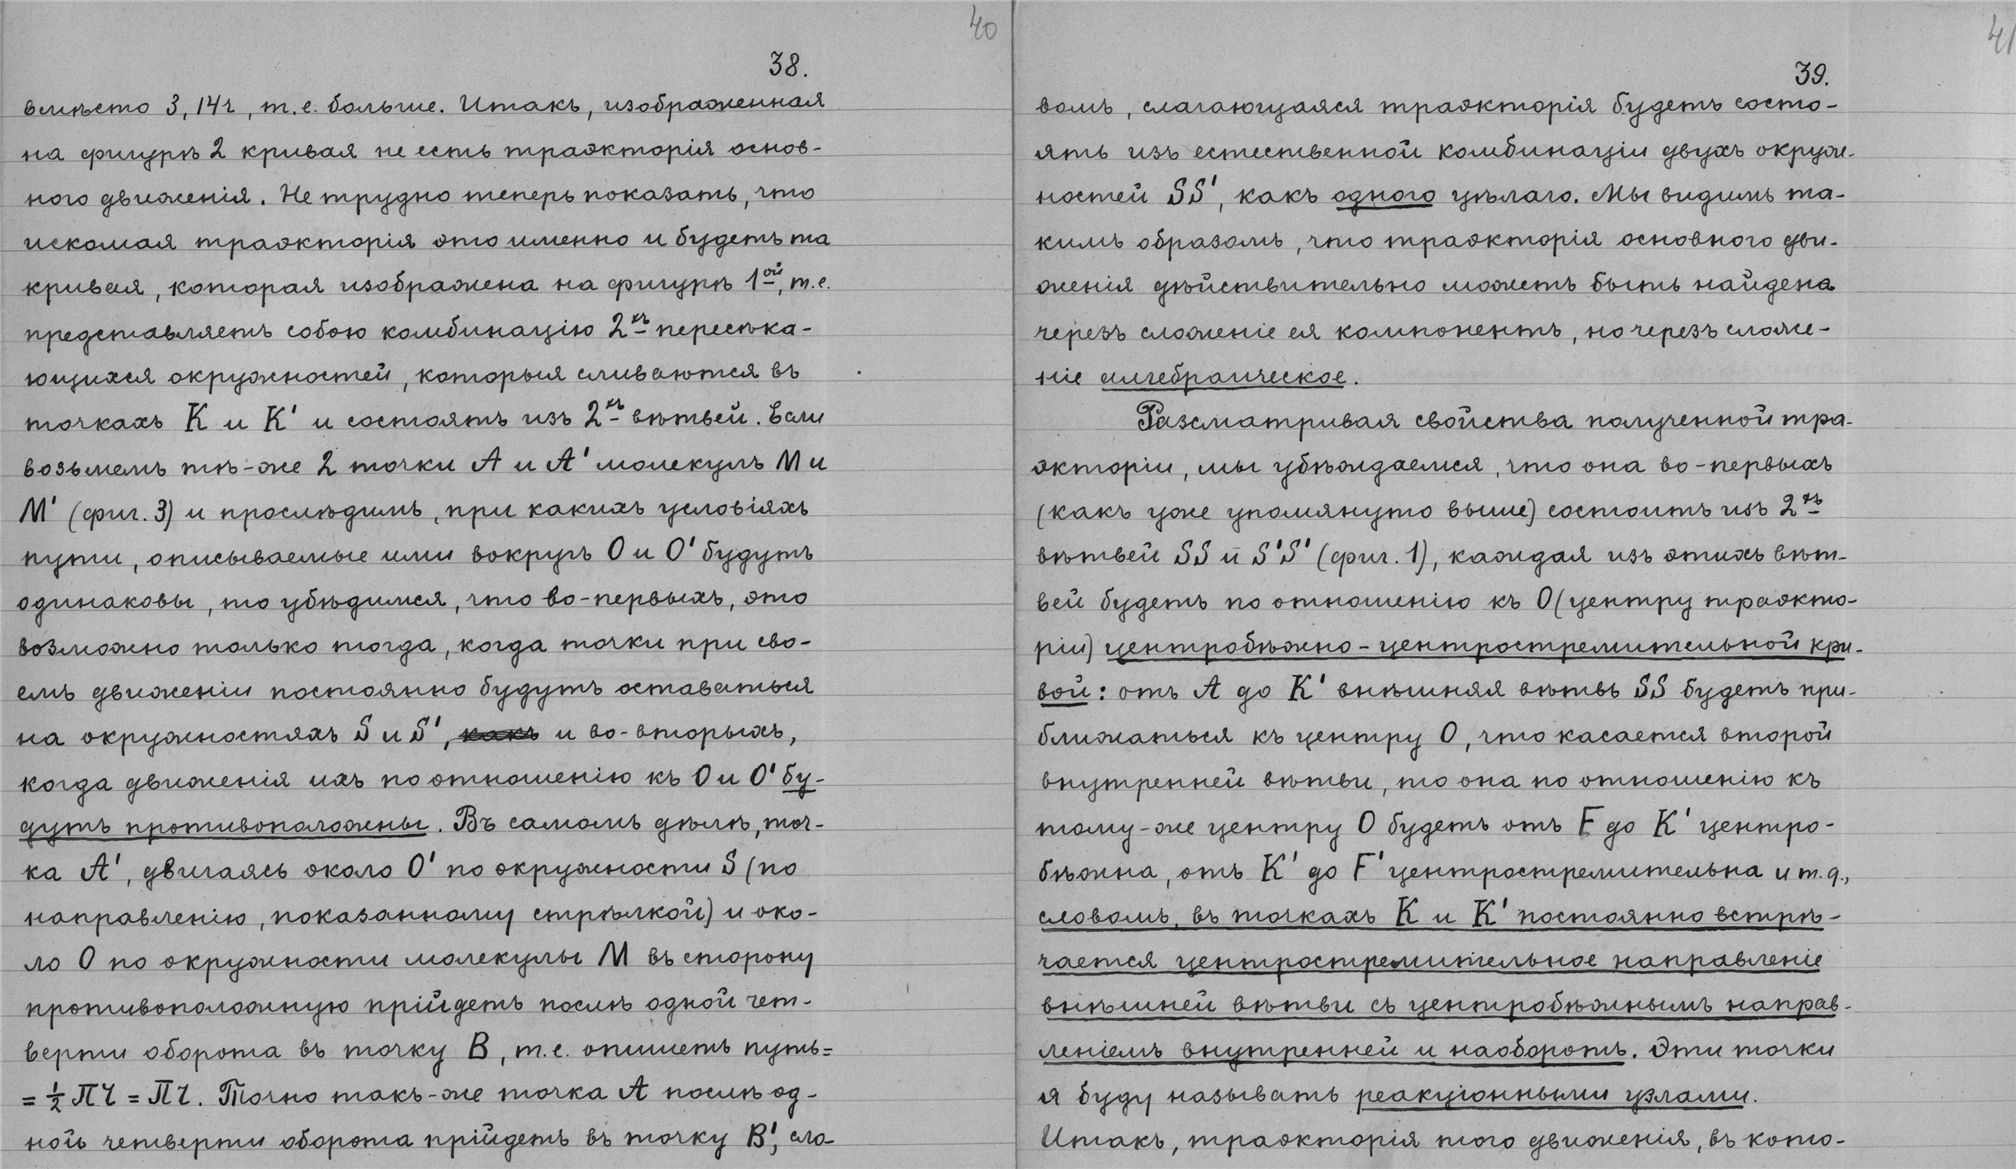 40
38.
вмѣсто 3,14r, т.е. больше. Итакъ, изображенная
на фигурѣ 2 кривая не есть траэкторія основ-
ного движенія. Не трудно теперь показать, что
искомая траэкторія это именно и будетъ та
кривая, которая изображена на фигурѣ 1ой, т.е.
представляетъ собою комбинацію 2хъ пересѣка-
ющихся окружностей, которыя сливаются въ
точкахъ K и K' и состоятъ изъ 2хъ вѣтвей. Если
возьмемъ тѣ-же 2 точки A и A' молекулъ M и
M' (фиг. 3) и прослѣдимъ, при какихъ условіяхъ
пути, описываемые ими вокругъ O и O' будутъ
одинаковы, то убѣдимся, что во-первыхъ, это
возможно только тогда, когда точки при сво-
емъ движеніи постоянно будутъ оставаться
на окружностяхъ S и S', какъ и во-вторыхъ,
когда движенія ихъ по отношенію къ O и O' бу-
дутъ противоположны. Въ самомъ дѣлѣ, точ-
ка A', двигаясь около O' по окружности S (по
направленію, показанному стрѣлкой) и око-
ло O по окружности молекулы M въ сторону
противоположную прійдетъ послѣ одной чет-
верти оборота въ точку B, т.е. опишетъ путь=
= ½ πr = πr. Точно такъ-же точка A послѣ од-
ной четверти оборота прійдетъ въ точку B', сло-
41
39.
вомъ, слагающаяся траэкторія будетъ состо-
ять изъ естественной комбинаціи двухъ окруж-
ностей SS', какъ одного цѣлаго. Мы видимъ та-
кимъ образомъ, что траэкторія основного дви-
женія дѣйствительно можетъ быть найдена
черезъ сложеніе ея компонентъ, но черезъ сложе-
ніе алгебраическое.
Разсматривая свойства полученной тра-
экторіи, мы убѣждаемся, что она во-первыхъ
(какъ уже упомянуто выше) состоитъ изъ 2хъ
вѣтвей SS и S'S' (фиг. 1), каждая изъ этихъ вѣт-
вей будетъ по отношенію къ O (центру траэкто-
ріи) центробѣжно-центростремительной кри-
вой: отъ A до K' внѣшняя вѣтвь SS будетъ при-
ближаться къ центру O, что касается второй
внутренней вѣтви, то она по отношенію къ
тому-же центру O будетъ отъ F до K' центро-
бѣжна, отъ K' до F' центростремительна и т.д.,
словомъ, въ точкахъ K и K' постоянно встрѣ-
чается центростремительное направленіе
внѣшней вѣтви съ центробѣжнымъ направ-
леніемъ внутренней и наоборотъ. Эти точки
я буду называть реакціонными узлами.
Итакъ, траэкторія того движенія, въ кото-